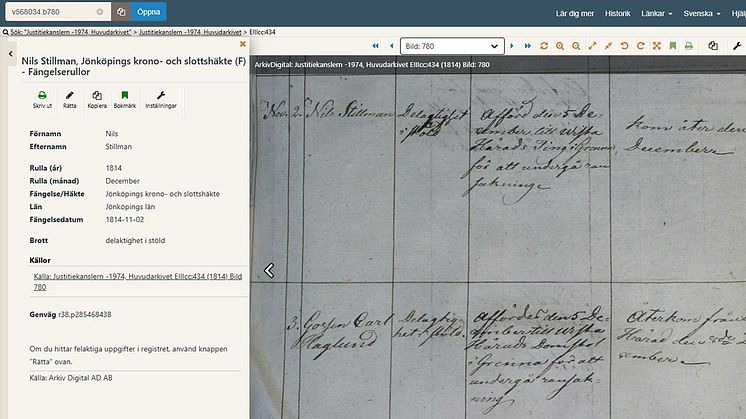 v568034.b780
Öppna
Lär dig mer
Historik
Länkar
Svenska
Hjäl
Sök: "Justitiekanslern -1974, Huvudarkivet" > Justitiekanslern -1974, Huvudarkivet > EIIIcc:434
Nils Stillman, Jönköpings krono- och slottshäkte (F)
- Fängelserullor
Skriv ut
Rätta
Kopiera
Bokmärk
Inställningar
Förnamn Nils
Efternamn Stillman
Rulla (år) 1814
Rulla (månad) December
Fängelse/Häkte Jönköpings krono- och slottshäkte
Län Jönköpings län
Fängelsedatum 1814-11-02
Brott delaktighet i stöld
Källor
Källa: Justitiekanslern -1974, Huvudarkivet EIIIcc:434 (1814) Bild
780
Genväg r38.p285468438
Om du hittar felaktiga uppgifter i registret, använd knappen
"Rätta" ovan.
Källa: Arkiv Digital AD AB
Bild: 780
ArkivDigital: Justitiekanslern -1974, Huvudarkivet EIIIcc:434 (1814) Bild: 780
Nov. 2. Nils Stillman
Delagtighet
i stöld
Afförd den 5 De-
cember till Wista
Härads Ting i Grenna,
för att undergå ran-
sakning
kom åter den
December
3. Carl
Haglund
Delagtig-
het i stöld.
Affördes den 5 De-
cember till Wista
Härads Domstol
i Grenna för att
undergå ransak-
ning
Återkom från
Härad den
cember